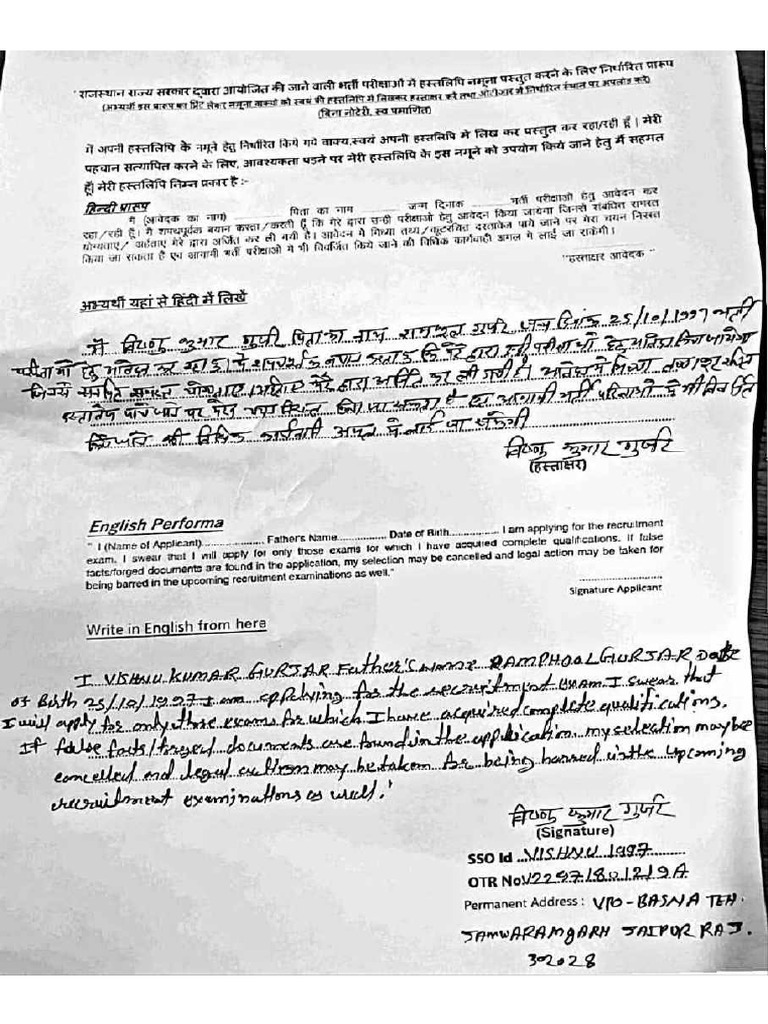 ' राजस्थान राज्य सरकार द्वारा आयोजित की जाने वाली भर्ती परीक्षाओ में हस्तलिपि नमूना प्रस्तुत करने के लिए निर्धारित प्रारूप
(अभ्यर्थी इस प्रारूप का प्रिंट लेकर नमूना वाक्यों को स्वयं की हस्तलिपि में लिखकर हस्ताक्षर करे तथा ओटीआर में निर्धारित स्थान पर अपलोड करे)
(बिना नोटेरी, स्व प्रमाणित)
में अपनी हस्तलिपि के नमूने हेतु निर्धारित किये गये वाक्य,स्वयं अपनी हस्तलिपि मे लिख कर प्रस्तुत कर रहा/रही हूँ। मेरी
पहचान सत्यापित करने के लिए, आवश्यकता पड़ने पर मेरी हस्तलिपि के इस नमूने को उपयोग किये जाने हेतु मैं सहमत
हूँ। मेरी हस्तलिपि निम्न प्रकार है :-
हिन्दी प्रारूप
मै (आवेदक का नाम) .................... पिता का नाम .................... जन्म दिनांक .................... भर्ती परीक्षाओ हेतु आवेदन कर
रहा/रही हूँ। मै शपथपूर्वक बयान करता/करती हूँ कि मेरे द्वारा उन्ही परीक्षाओ हेतु आवेदन किया जायेगा जिनसे संबंधित समस्त
योग्यताए/ अर्हताए मेरे द्वारा अर्जित कर ली गयी है। आवेदन मे मिथ्या तथ्य/कूटरचित दस्तावेज पाये जाने पर मेरा चयन निरस्त
किया जा सकता है एवं आगामी भर्ती परीक्षाओ मे भी विवर्जित किये जाने की विधिक कार्यवाही अमल मे लाई जा सकेगी।
"हस्ताक्षर आवेदक"
अभ्यर्थी यहां से हिंदी में लिखें
मैं विष्णु कुमार गुर्जर पिता का नाम रामफूल गुर्जर जन्म दिनांक 25/10/1997 भर्ती
परीक्षाओ हेतु आवेदन कर रहा हूँ। मै शपथपूर्वक बयान करता हूँ कि मेरे द्वारा उन्ही परीक्षाओ हेतु आवेदन किया जायेगा
जिनसे संबंधित समस्त योग्यताए/अर्हताए मेरे द्वारा अर्जित कर ली गयी है। आवेदन मे मिथ्या तथ्य/कूटरचित
दस्तावेज पाये जाने पर मेरा चयन निरस्त किया जा सकता है एवं आगामी भर्ती परीक्षाओ मे भी विवर्जित
किये जाने की विधिक कार्यवाही अमल मे लाई जा सकेगी
विष्णु कुमार गुर्जर
(हस्ताक्षर)
English Performa
" I (Name of Applicant).................... Father's Name............... Date of Birth............... I am applying for the recruitment
exam. I swear that I will apply for only those exams for which I have acquired complete qualifications. If false
facts/forged documents are found in the application, my selection may be cancelled and legal action may be taken for
being barred in the upcoming recruitment examinations as well."
Signature Applicant
Write in English from here
I VISHNU KUMAR GURJAR Father's Name RAMPHOOL GURJAR Date
of Birth 25/10/1997 I am applying for the recruitment Exam. I swear that
I will apply for only those exams for which I have acquired complete qualifications.
If false facts/forged documents are found in the application, my selection may be
cancelled and legal action may be taken for being barred in the upcoming
recruitment examinations as well.'
विष्णु कुमार गुर्जर
(Signature)
SSO Id VISHNU 1997
OTR No V2297180121 9A
Permanent Address : VPO-BASNA TEH.
JAMWARAMGARH JAIPUR RAJ.
302028